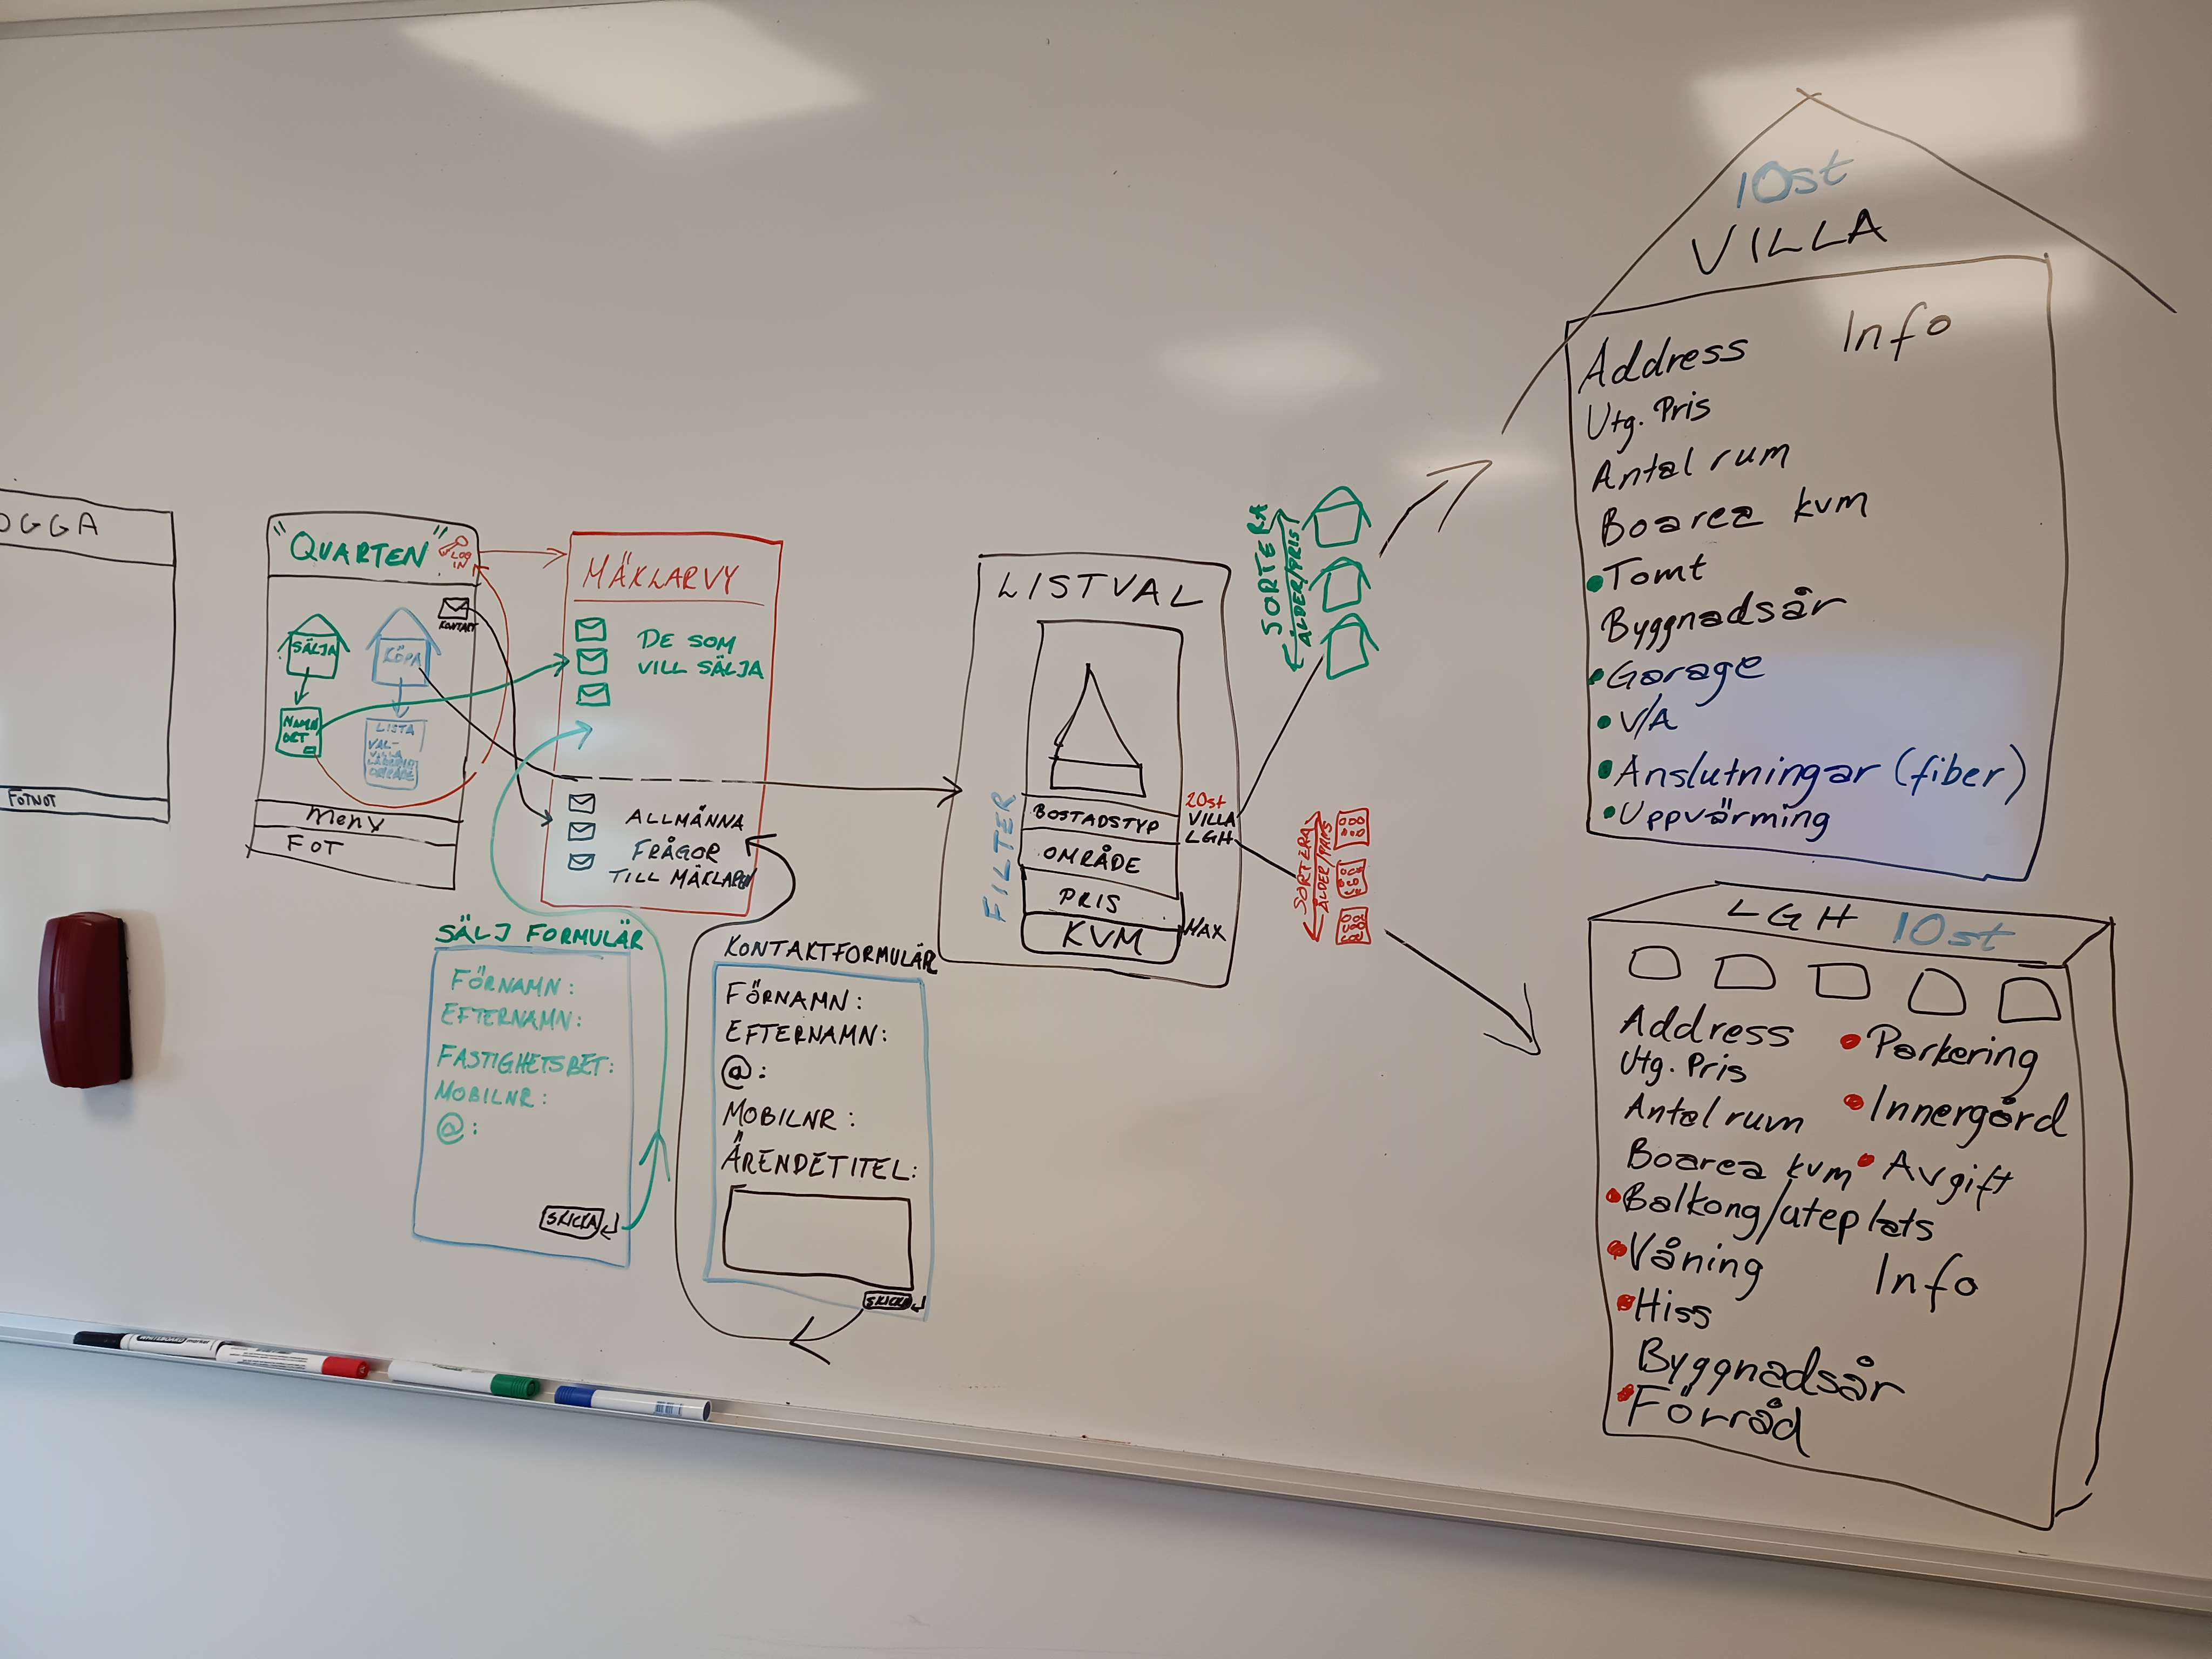 OGGA
FOTNOT
"QUARTEN"
LOG
IN
KONTAKT
SÄLJA
KÖPA
NAMN
ORT
LISTA
VAL-
VILLA
OMRÅDE
MENY
FOT
MÄKLARVY
DE SOM
VILL SÄLJA
ALLMÄNNA
FRÅGOR
TILL MÄKLAREN
SÄLJ FORMULÄR
FÖRNAMN:
EFTERNAMN:
FASTIGHETSBET:
MOBILNR:
@:
SKICKA
KONTAKTFORMULÄR
FÖRNAMN:
EFTERNAMN:
@:
MOBILNR:
ÄRENDETITEL:
SKICKA
LISTVAL
FILTER
BOSTADSTYP
OMRÅDE
PRIS
KVM
MAX
20st
VILLA
LGH
SORTERA
ÅLDER/PRIS
SORTERA
ÅLDER/PRIS
10st
VILLA
Info
Address
Utg. Pris
Antal rum
Boarea kvm
Tomt
Byggnadsår
Garage
V/A
Anslutningar (fiber)
Uppvärming
LGH 10st
Address
Utg. Pris
Antal rum
Boarea kvm
Balkong/uteplats
Våning
Hiss
Byggnadsår
Förråd
Parkering
Innergård
Avgift
Info